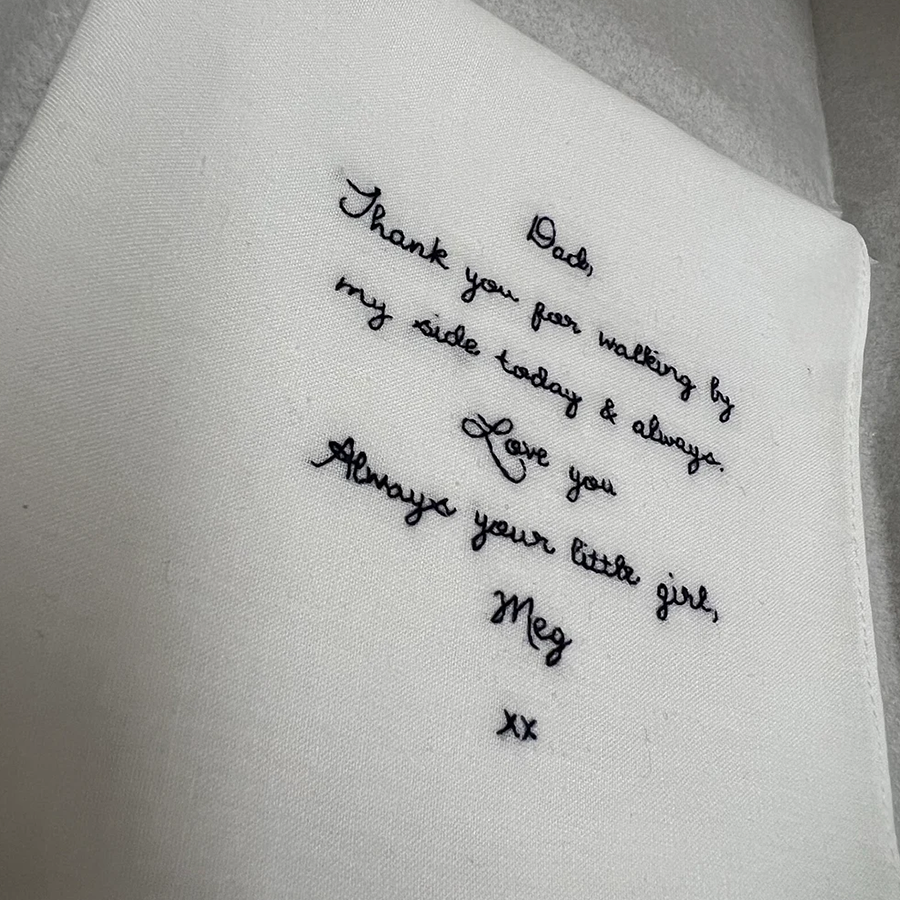 Dad,
Thank you for walking by
my side today & always.
Love you
Always your little girl,
Meg
xx